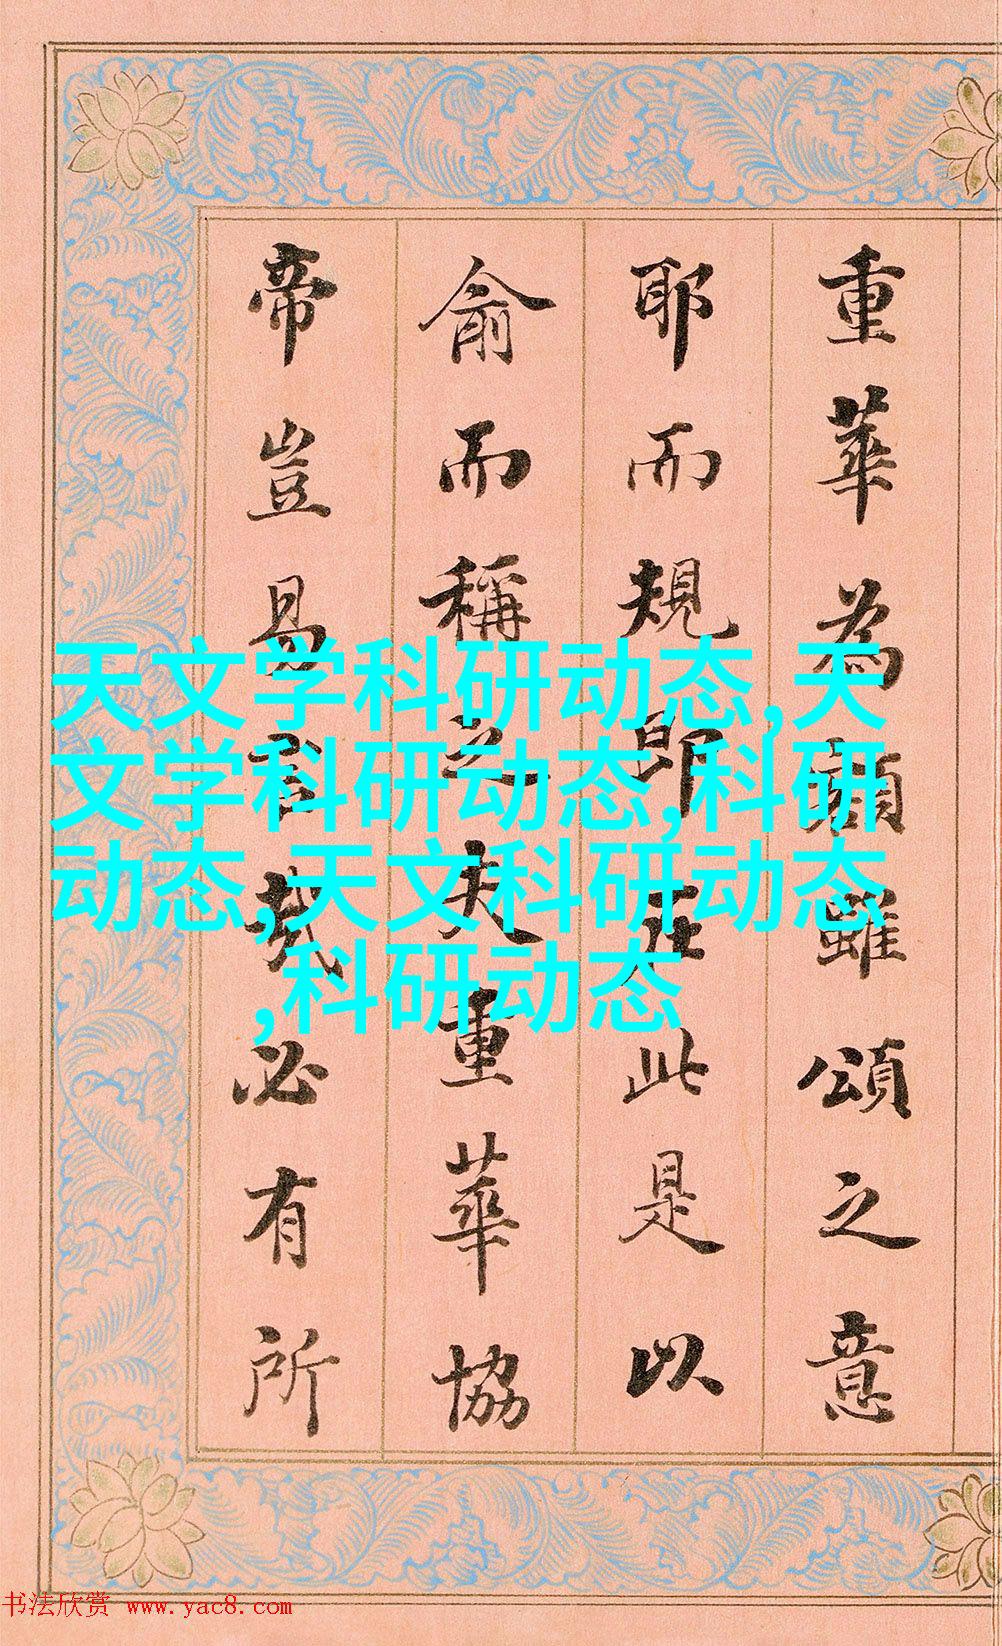 重華為顙雖頌之意
耶而規即在此是以
俞而稱之夫重華協
帝豈易言哉必有所
天文学科研动态,天
文学科研动态,科研
动态,天文科研动态
,科研动态
书法欣赏 www.yac8.com